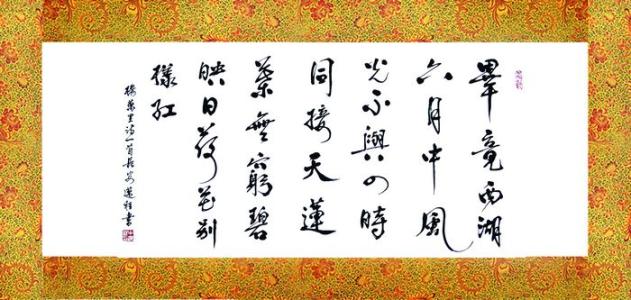 畢竟西湖
六月中風
光不與四時
同接天蓮
葉無窮碧
映日荷花别
樣紅
楊萬里詩一首長安書